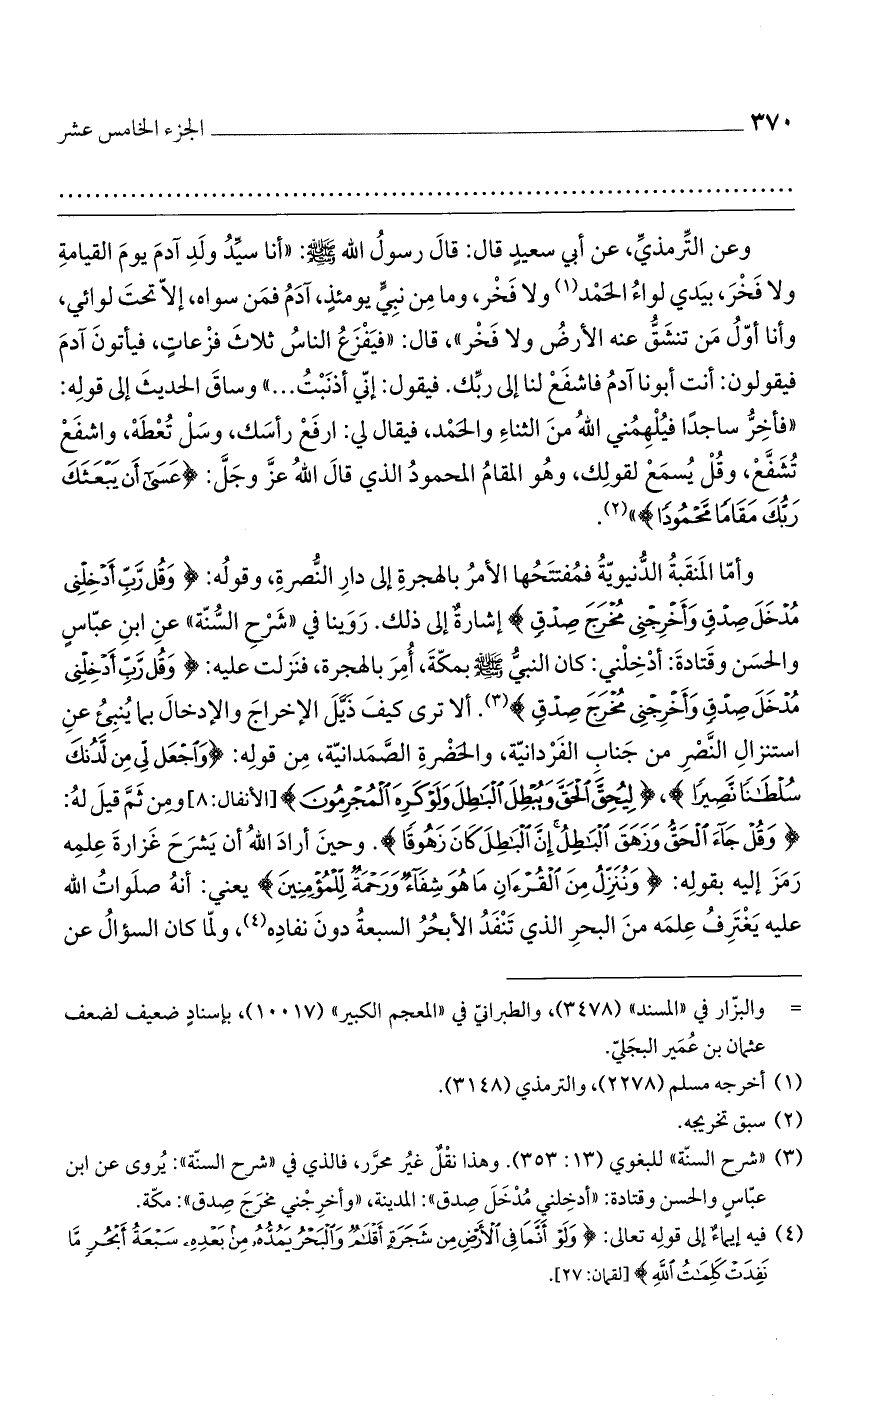 ٣٧٠ ــــــــــــــــــــ الجزء الخامس عشر
..........................................................................................
وعن التِّرمذيِّ، عن أبي سعيدٍ قال: قالَ رسولُ الله ﷺ: «أنا سيِّدُ ولَدِ آدمَ يومَ القيامةِ
ولا فَخْرَ، بيَدي لواءُ الحَمْد(١) ولا فَخْر، وما مِن نبيٍّ يومئذٍ، آدَمُ فمَن سواه، إلاّ تحتَ لوائي،
وأنا أوّلُ مَن تنشَقُّ عنه الأرضُ ولا فَخْر»، قال: «فيَفْزَعُ الناسُ ثلاثَ فزْعاتٍ، فيأتونَ آدمَ
فيقولون: أنت أبونا آدمُ فاشفَعْ لنا إلى ربِّك. فيقول: إنّي أذنَبْتُ...» وساقَ الحديثَ إلى قولِه:
«فأخِرُّ ساجدًا فيُلْهِمُني اللهُ منَ الثناءِ والحَمْد، فيقال لي: ارفَعْ رأسَك، وسَلْ تُعْطَهْ، واشفَعْ
تُشَفَّعْ، وقُلْ يُسمَعْ لقولِك، وهُو المقامُ المحمودُ الذي قالَ اللهُ عزَّ وجَلَّ: ﴿عَسَىٰٓ أَن يَبْعَثَكَ
رَبُّكَ مَقَامًا مَّحْمُودًا﴾»(٢).
وأمّا المَنقَبةُ الدُّنيويّةُ فمُفتتَحُها الأمرُ بالهجرةِ إلى دارِ النُّصرةِ، وقولُه: ﴿وَقُل رَّبِّ أَدْخِلْنِى
مُدْخَلَ صِدْقٍ وَأَخْرِجْنِى مُخْرَجَ صِدْقٍ﴾ إشارةٌ إلى ذلك. رَوَينا في «شَرْحِ السُّنّة» عنِ ابنِ عبّاسٍ
والحسَن وقتادةَ: أدْخِلْني: كان النبيُّ ﷺ بمكّةَ، أُمِرَ بالهجرة، فنَزلت عليه: ﴿وَقُل رَّبِّ أَدْخِلْنِى
مُدْخَلَ صِدْقٍ وَأَخْرِجْنِى مُخْرَجَ صِدْقٍ﴾(٣). ألا ترى كيفَ ذَيَّلَ الإخراجَ والإدخالَ بما يُنبِئُ عنِ
استنزالِ النَّصْرِ من جَنابِ الفَرْدانيّة، والحَضْرةِ الصَّمَدانيّة، مِن قولِه: ﴿وَٱجْعَل لِّى مِن لَّدُنكَ
سُلْطَٰنًا نَّصِيرًا﴾، ﴿لِيُحِقَّ ٱلْحَقَّ وَيُبْطِلَ ٱلْبَٰطِلَ وَلَوْ كَرِهَ ٱلْمُجْرِمُونَ﴾ [الأنفال: ٨] ومِن ثَمَّ قيلَ لهُ:
﴿وَقُلْ جَآءَ ٱلْحَقُّ وَزَهَقَ ٱلْبَٰطِلُ إِنَّ ٱلْبَٰطِلَ كَانَ زَهُوقًا﴾. وحينَ أرادَ اللهُ أن يَشرَحَ غَزارةَ علمِه
رَمَزَ إليه بقولِه: ﴿وَنُنَزِّلُ مِنَ ٱلْقُرْءَانِ مَا هُوَ شِفَآءٌ وَرَحْمَةٌ لِّلْمُؤْمِنِينَ﴾ يعني: أنهُ صلَواتُ الله
عليه يَغْتَرِفُ عِلمَه منَ البحرِ الذي تَنْفَدُ الأبحُرُ السبعةُ دونَ نفادِه(٤)، ولمّا كان السؤالُ عن
= والبزّار في «المسند» (٣٤٧٨)، والطبرانيّ في «المعجم الكبير» (١٠٠١٧)، بإسنادٍ ضعيف لضعف
عثمان بن عُمَير البجَليّ.
(١) أخرجه مسلم (٢٢٧٨)، والترمذي (٣١٤٨).
(٢) سبق تخريجه.
(٣) «شرح السنّة» للبغوي (١٣: ٣٥٣). وهذا نقْلٌ غيرُ محرَّر، فالذي في «شرح السنّة»: يُروى عن ابن
عبّاسٍ والحسن وقتادة: «أدخِلني مُدْخَلَ صدق»: المدينة، «وأخرِجْني مخرَجَ صِدق»: مكّة.
(٤) فيه إيماءٌ إلى قولِه تعالى: ﴿وَلَوْ أَنَّمَا فِى ٱلْأَرْضِ مِن شَجَرَةٍ أَقْلَٰمٌ وَٱلْبَحْرُ يَمُدُّهُۥ مِنۢ بَعْدِهِۦ سَبْعَةُ أَبْحُرٍ مَّا
نَفِدَتْ كَلِمَٰتُ ٱللَّهِ﴾ [لقمان: ٢٧].